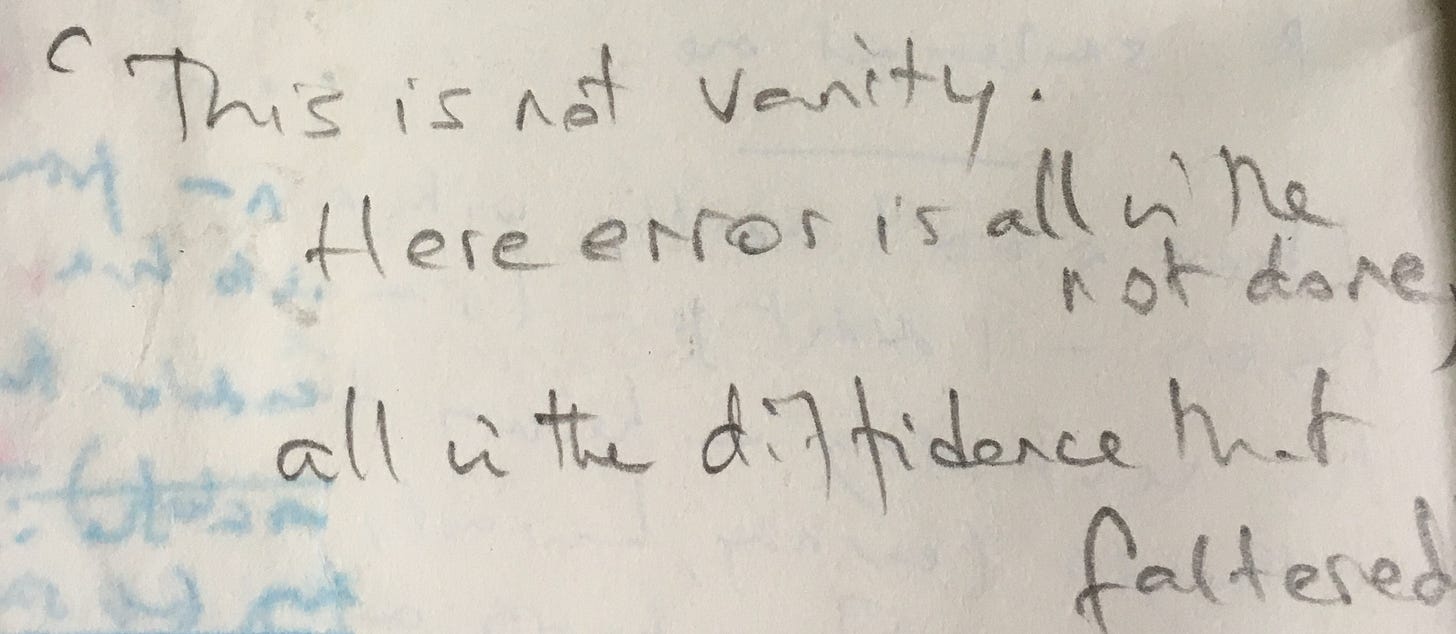 ‘This is not vanity.
Here error is all in the
not done,
all in the diffidence that
faltered